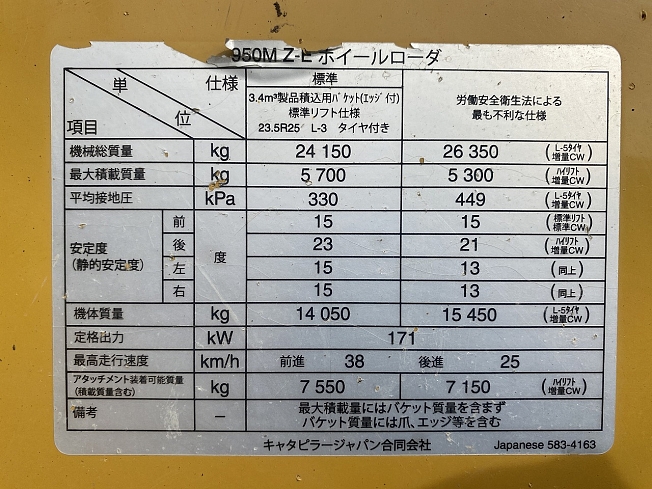 950M Z-E ホイールローダ
単位 仕様 標準
項目 3.4m³製品積込用バケット(エッジ付) 労働安全衛生法による
標準リフト仕様 最も不利な仕様
23.5R25 L-3 タイヤ付き
機械総質量 kg 24 150 26 350 (L-5タイヤ 増量CW)
最大積載質量 kg 5 700 5 300 (ハイリフト 増量CW)
平均接地圧 kPa 330 449 (L-5タイヤ 増量CW)
安定度 (静的安定度) 前 度 15 15 (標準リフト 標準CW)
後 23 21 (ハイリフト 増量CW)
左 15 13 (同上)
右 15 13 (同上)
機体質量 kg 14 050 15 450 (L-5タイヤ 増量CW)
定格出力 kW 171
最高走行速度 km/h 前進 38 後進 25
アタッチメント装着可能質量 (積載質量含む) kg 7 550 7 150 (ハイリフト 増量CW)
備考 – 最大積載量にはバケット質量を含まず
バケット質量には爪、エッジ等を含む
キャタピラージャパン合同会社 Japanese 583-4163